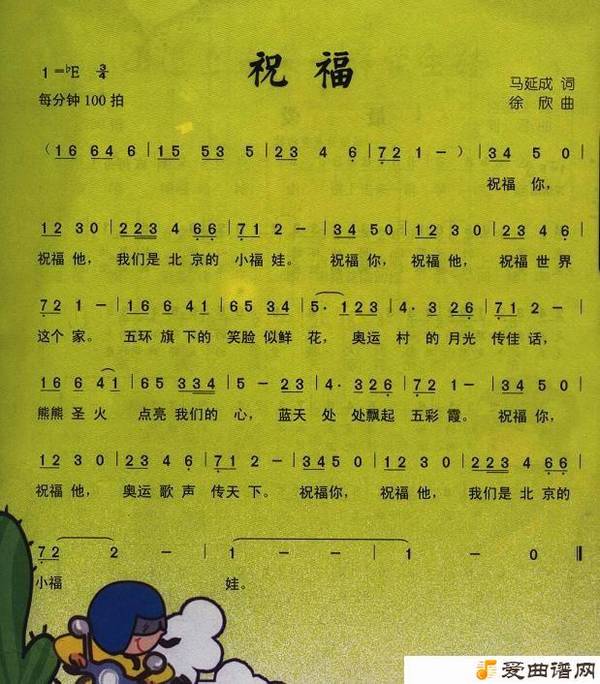 祝福
1=♭E 3/4
马延成 词
每分钟100拍
徐欣 曲
( 16 646 | 15 535 | 23 4 6 | 72 1 — ) | 34 5 0
祝福 你,
12 3 0 | 223 4 66 | 71 2 — | 34 5 0 | 12 3 0 | 23 4 6
祝福 他, 我们是 北 京的 小福 娃。 祝福 你, 祝福 他, 祝福 世 界
72 1 — | 16 6 41 | 65 34 | 5· 123 | 4· 3 26 | 71 2 —
这个 家。 五环 旗 下的 笑脸 似鲜 花, 奥运 村 的月光 传佳 话,
16 6 41 | 65 334 | 5 — 23 | 4· 326 | 72 1 — | 34 5 0
熊熊 圣 火 点亮 我们的 心, 蓝天 处 处飘起 五彩 霞。 祝福 你,
12 3 0 | 23 4 6 | 72 2 — | 345 0 | 12 3 0 | 223 4 66
祝福 他, 奥运 歌 声 传天 下。 祝福你, 祝福 他, 我们是 北 京的
72 2 — | 1 — — | 1 — 0 ‖
小福 娃。
爱曲谱网